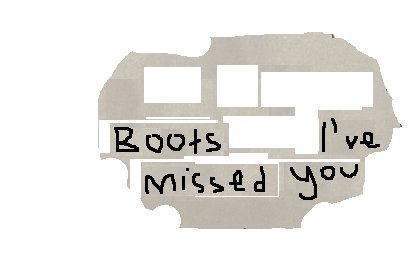 Boots I've
missed you